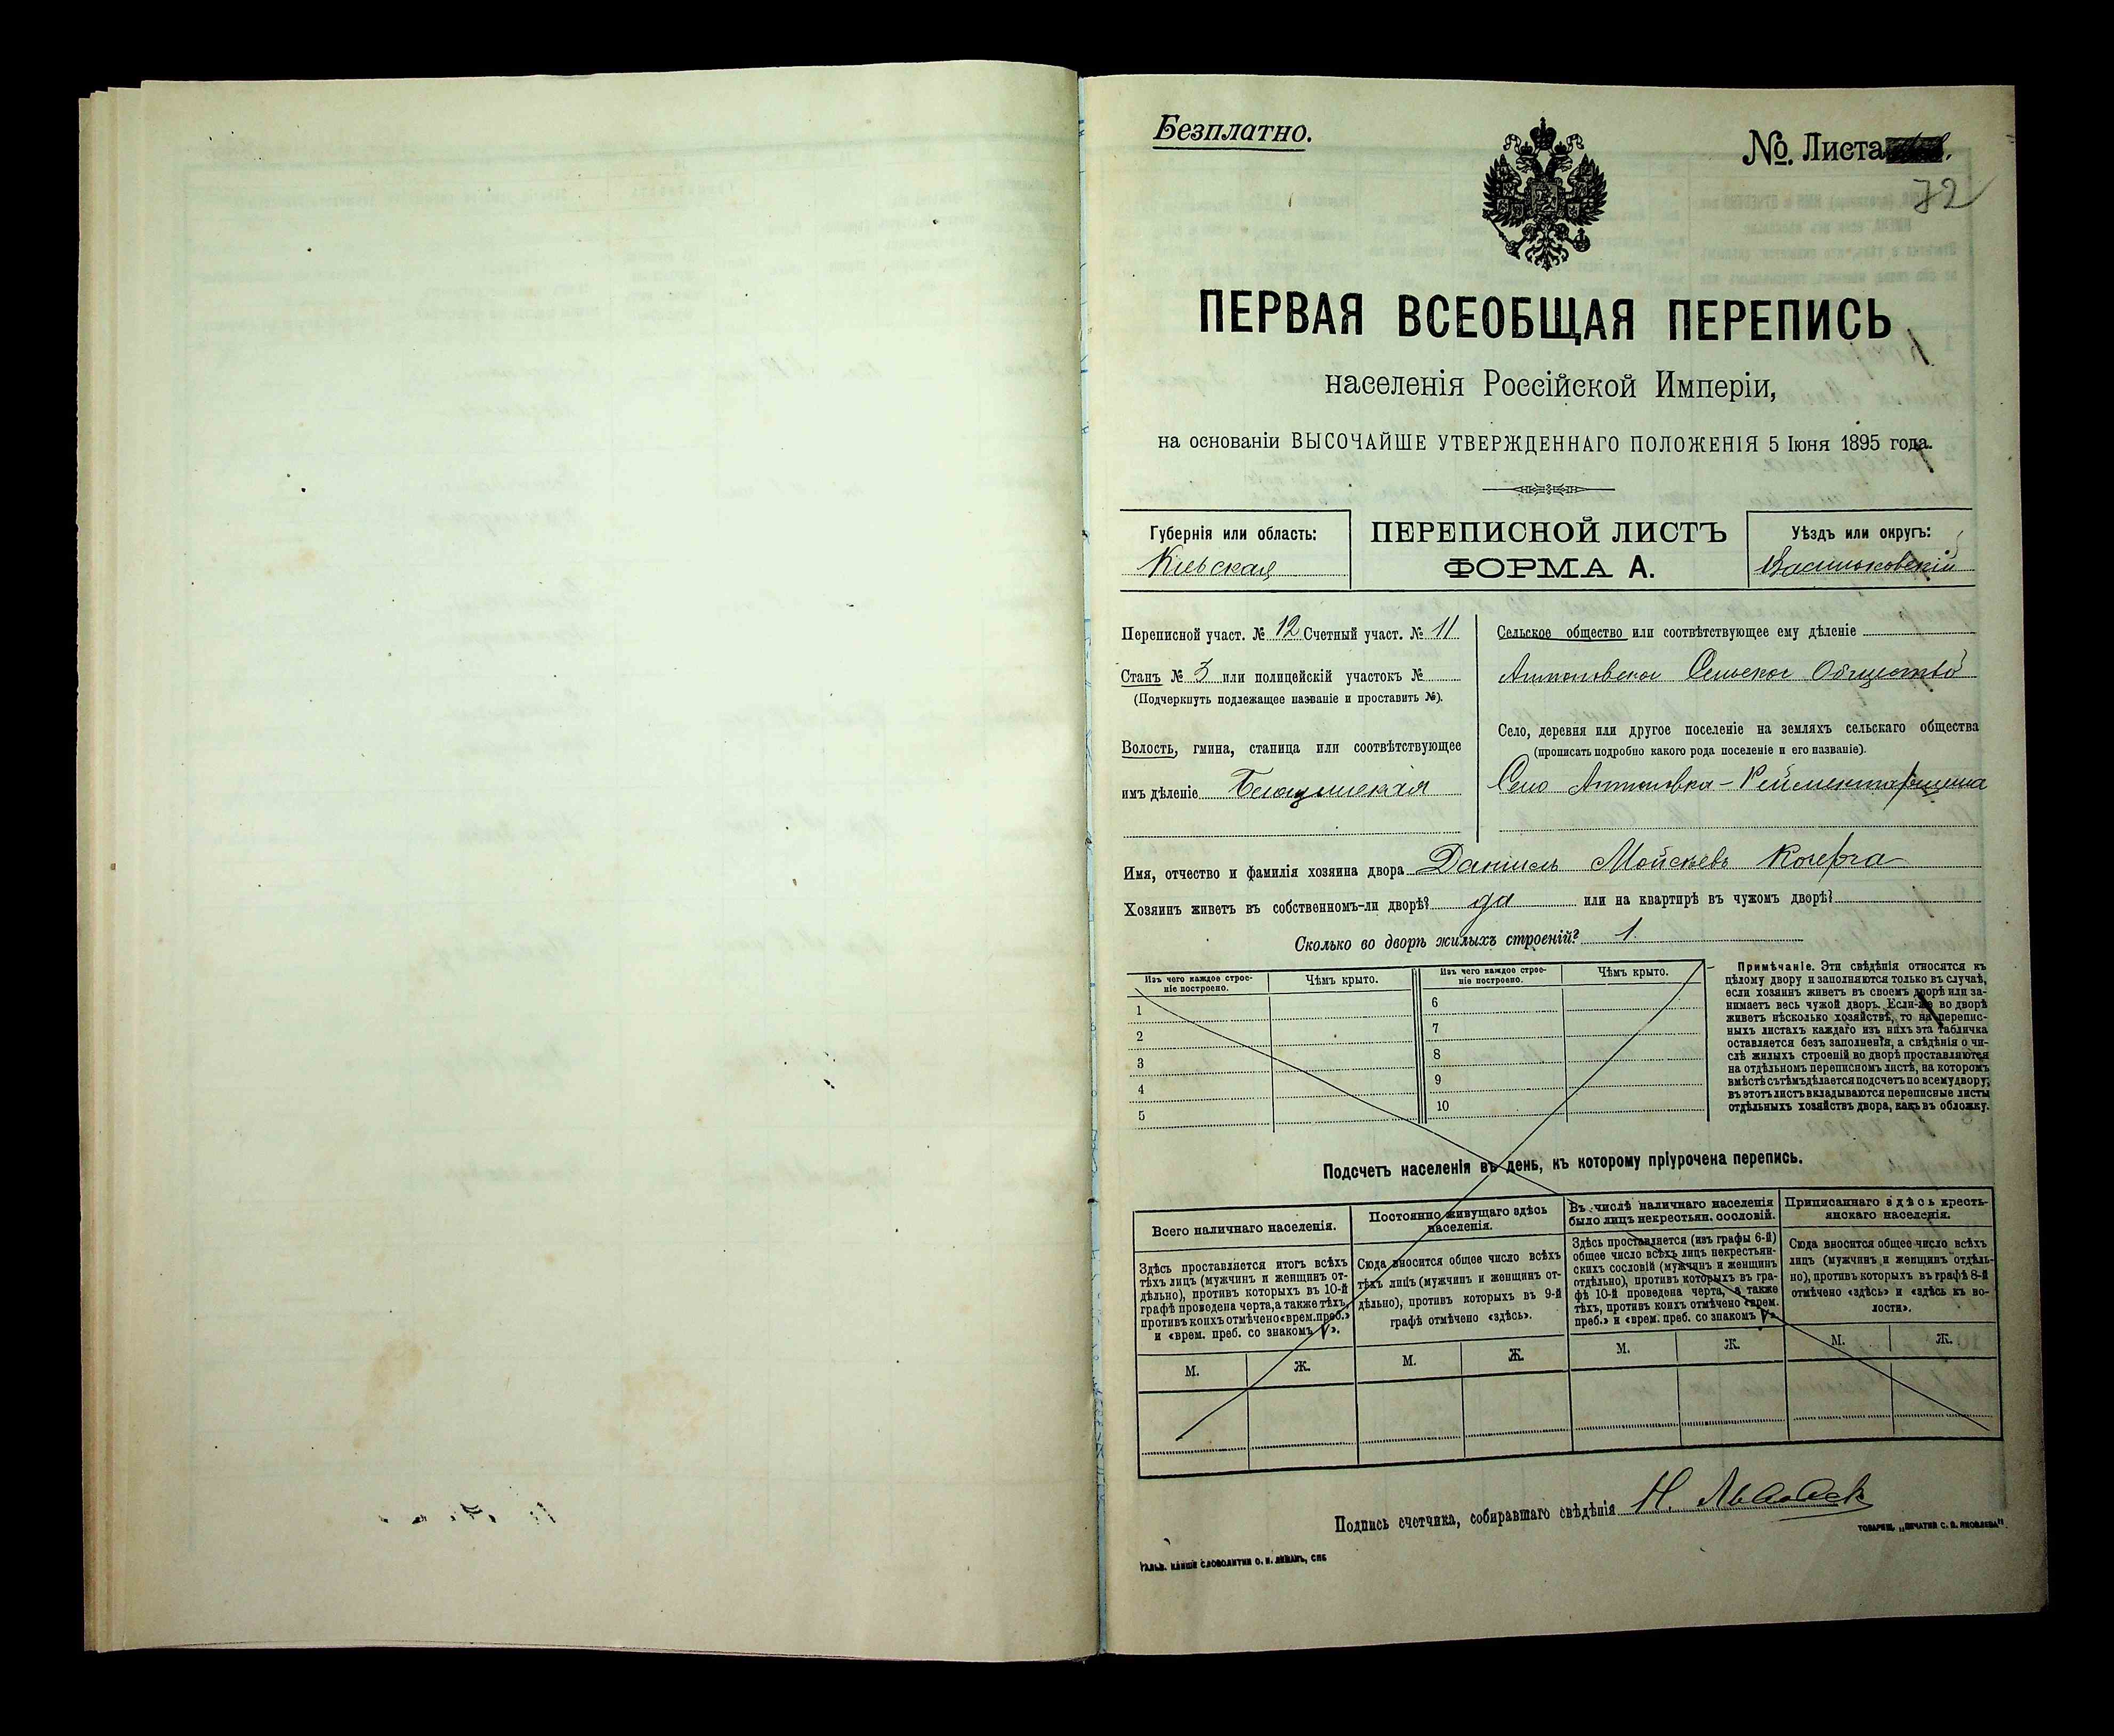 Безплатно.
№. Листа
72
ПЕРВАЯ ВСЕОБЩАЯ ПЕРЕПИСЬ
населенія Россійской Имперіи,
на основаніи ВЫСОЧАЙШЕ УТВЕРЖДЕННАГО ПОЛОЖЕНІЯ 5 Іюня 1895 года.
Губернія или область:
Кіевская
ПЕРЕПИСНОЙ ЛИСТЪ
ФОРМА А.
Уѣздъ или округъ:
Васильковскій
Переписной участ. № 12 Счетный участ. № 11
Станъ № 3 или полицейскій участокъ №
(Подчеркнуть подлежащее названіе и проставить №).
Волость, гмина, станица или соотвѣтствующее
имъ дѣленіе
Сельское общество или соотвѣтствующее ему дѣленіе
Антоновское Сельское Общество
Село, деревня или другое поселеніе на земляхъ сельскаго общества
(прописать подробно какого рода поселеніе и его названіе).
Село Антоновка-Рейментарщина
Имя, отчество и фамилія хозяина двора Даниилъ Мойсѣевъ Кочерга
Хозяинъ живетъ въ собственномъ-ли дворѣ? да или на квартирѣ въ чужомъ дворѣ?
Сколько во дворѣ жилыхъ строеній? 1.
Изъ чего каждое строе-
ніе построено.
Чѣмъ крыто.
Изъ чего каждое строе-
ніе построено.
Чѣмъ крыто.
1
2
3
4
5
6
7
8
9
10
Примѣчаніе. Эти свѣдѣнія относятся къ
цѣлому двору и заполняются только въ случаѣ,
если хозяинъ живетъ въ своемъ дворѣ или за-
нимаетъ весь чужой дворъ. Если-же во дворѣ
живетъ нѣсколько хозяйствъ, то на перепис-
ныхъ листахъ каждаго изъ нихъ эта табличка
оставляется безъ заполненія, а свѣдѣнія о чи-
слѣ жилыхъ строеній во дворѣ проставляются
на отдѣльномъ переписномъ листѣ, на которомъ
вмѣстѣ съ тѣмъ дѣлается подсчетъ по всему двору;
въ этотъ листъ вкладываются переписные листы
отдѣльныхъ хозяйствъ двора, какъ въ обложку.
Подсчетъ населенія въ день, къ которому пріурочена перепись.
Всего наличнаго населенія.
Здѣсь проставляется итогъ всѣхъ
тѣхъ лицъ (мужчинъ и женщинъ от-
дѣльно), противъ которыхъ въ 10-й
графѣ проведена черта, а также тѣхъ,
противъ коихъ отмѣчено «врем. преб.»
и «врем. преб. со знакомъ V».
М.
Ж.
Постоянно живущаго здѣсь
населенія.
Сюда вносится общее число всѣхъ
тѣхъ лицъ (мужчинъ и женщинъ от-
дѣльно), противъ которыхъ въ 9-й
графѣ отмѣчено «здѣсь».
М.
Ж.
Въ числѣ наличнаго населенія
было лицъ некрестьян. сословій.
Здѣсь проставляется (изъ графы 6-й)
общее число всѣхъ лицъ некрестьян-
скихъ сословій (мужчинъ и женщинъ
отдѣльно), противъ которыхъ въ гра-
фѣ 10-й проведена черта, а также
тѣхъ, противъ коихъ отмѣчено «врем.
преб.» и «врем. преб. со знакомъ V»
М.
Ж.
Приписаннаго здѣсь кресть-
янскаго населенія.
Сюда вносится общее число всѣхъ
лицъ (мужчинъ и женщинъ отдѣль-
но), противъ которыхъ въ графѣ 8-й
отмѣчено «здѣсь» и «здѣсь къ во-
лости».
М.
Ж.
Подпись счетчика, собиравшаго свѣдѣнія Н.
ТОВАРИЩ. „ПЕЧАТНЯ С. П. ЯКОВЛЕВА"
ГАЛЬВ. КЛИШЕ СЛОВОЛИТНИ О. И. ЛЕМАНЪ, СПБ